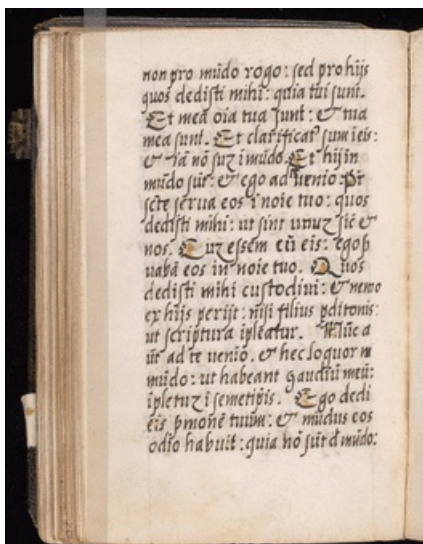 non pro mūdo rogo: sed pro hijs
quos dedisti mihi: quia tui sunt.
Et mea oīa tua sunt: & tua
mea sunt. Et clarificat⁹ sum ī eis:
& iā nō suꝫ ī mūdo. Et hij in
mūdo sūt: & ego ad venio. Pr̄
scte serua eos ī noīe tuo: quos
dedisti mihi: ut sint unuꝫ sic̄ &
nos. Cuꝫ essem cū eis: ego ẜ
uabā eos in noīe tuo. Quos
dedisti mihi custodiui: & nemo
ex hijs perijt: nisi filius ꝑditonis:
ut scriptura īpleatur. Nūc a
ūt ad te uenio. & hec loquor in
mūdo: ut habeant gaudiū meū:
īpletuꝫ ī semetipīs. Ego dedi
eis ẜmonē tuum: & mūdus eos
odio habuit: quia nō sūt d̄ mūdo: